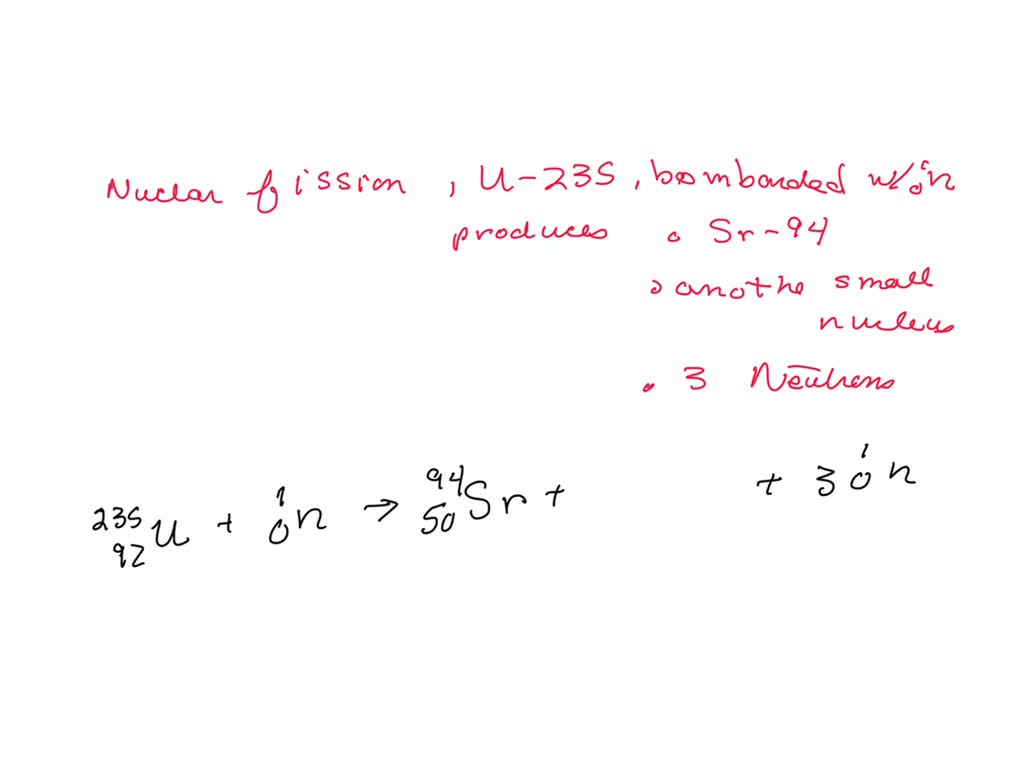 Nuclar fission, U-235, bombarded w/ ¹₀n
produces • Sr-94
• anothe small
nucleus
• 3 Neutrons
²³⁵₉₂U + ¹₀n → ⁹⁴₅₀Sr + + 3 ¹₀n